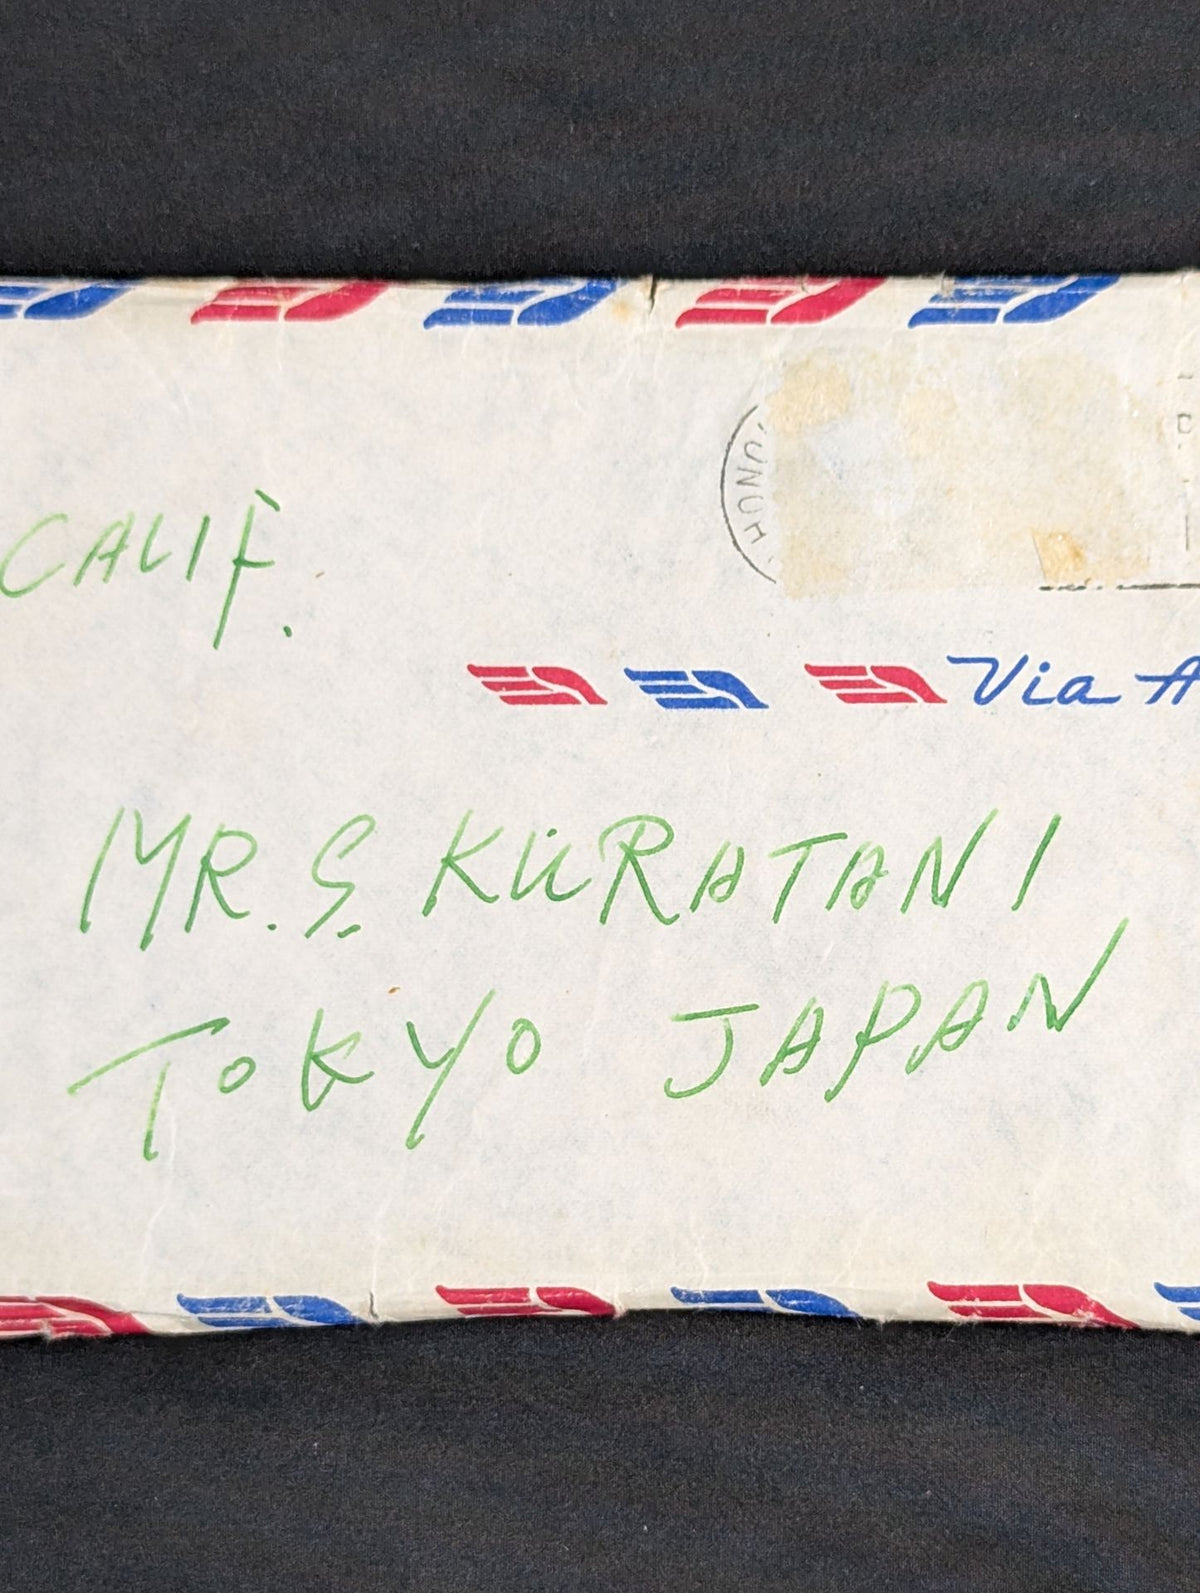 CALIF.
Via
MR. S. KURATANI
TOKYO JAPAN